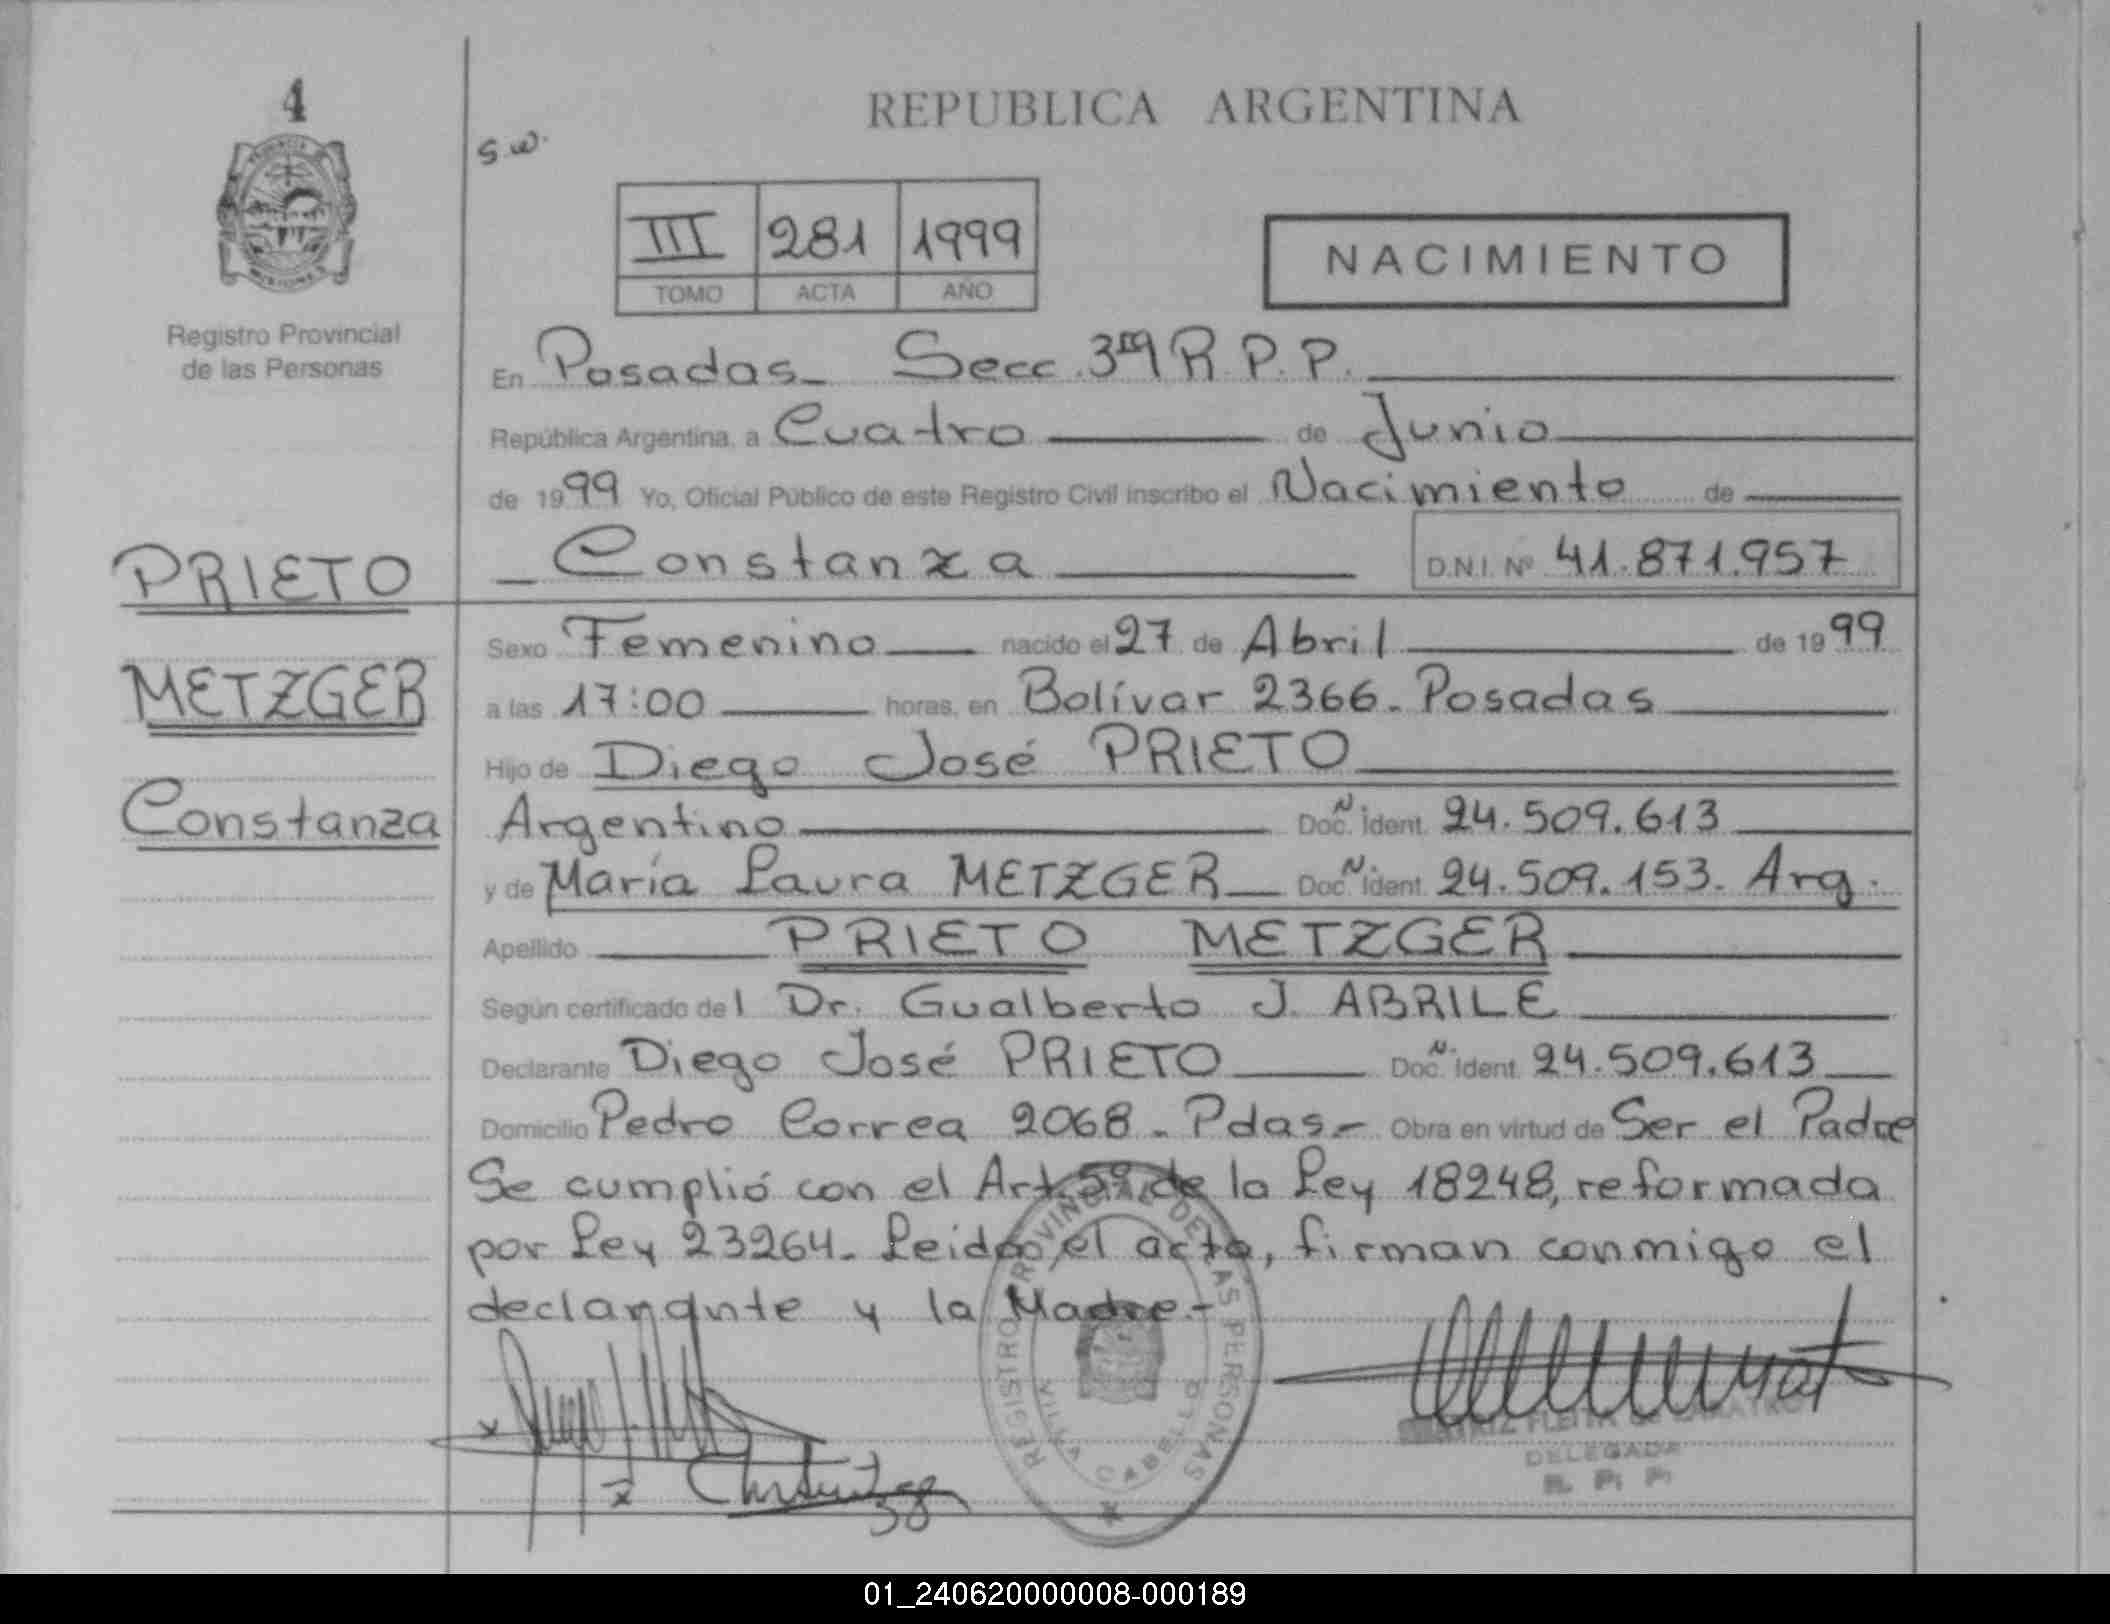 4
Registro Provincial
de las Personas
PRIETO
METZGER
Constanza
REPUBLICA ARGENTINA
S.W.
III 281 1999
TOMO ACTA AÑO
NACIMIENTO
En Posadas_ Secc. 3ra R.P.P.
República Argentina, a Cuatro de Junio
de 1999 Yo, Oficial Público de este Registro Civil inscribo el Nacimiento de
Constanza D.N.I. Nº 41.871.957
Sexo Femenino nacido el 27 de Abril de 1999
a las 17:00 horas, en Bolívar 2366. Posadas
Hijo de Diego José PRIETO
Argentino Doc. Ident. 24.509.613
y de María Laura METZGER Doc. Ident. 24.509.153. Arg.
Apellido PRIETO METZGER
Según certificado del Dr. Gualberto J. ABRILE
Declarante Diego José PRIETO Doc. Ident. 24.509.613
Domicilio Pedro Correa 2068 - Pdas.- Obra en virtud de Ser el Padre
Se cumplió con el Art. 5º de la Ley 18248, reformada
por Ley 23264. Leida el acta, firman conmigo el
declarante y la Madre.-
REGISTRO PROVINCIAL DE LAS PERSONAS
VILLA CABELLO
DELEGADA
R. P. P.
01_240620000008-000189